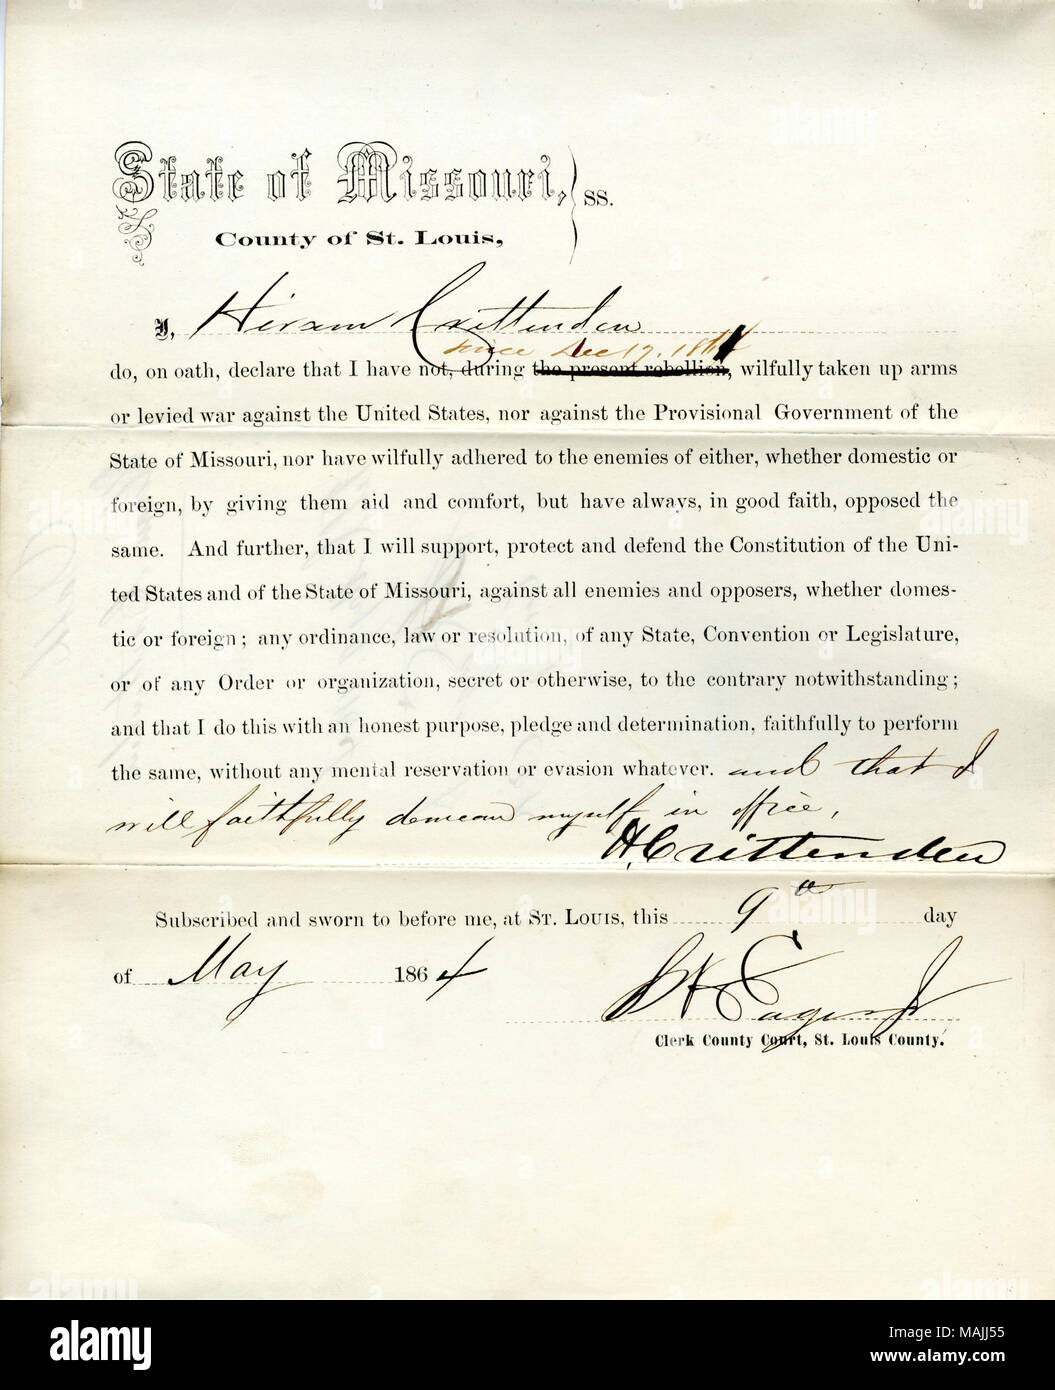 State of Missouri, } ss.
County of St. Louis,
I, Hiram Crittenden
since Dec 17. 1861
do, on oath, declare that I have not, during the present rebellion, wilfully taken up arms
or levied war against the United States, nor against the Provisional Government of the
State of Missouri, nor have wilfully adhered to the enemies of either, whether domestic or
foreign, by giving them aid and comfort, but have always, in good faith, opposed the
same. And further, that I will support, protect and defend the Constitution of the Uni-
ted States and of the State of Missouri, against all enemies and opposers, whether domes-
tic or foreign; any ordinance, law or resolution, of any State, Convention or Legislature,
or of any Order or organization, secret or otherwise, to the contrary notwithstanding;
and that I do this with an honest purpose, pledge and determination, faithfully to perform
the same, without any mental reservation or evasion whatever. and that I
will faithfully demean myself in office,
H. Crittenden
Subscribed and sworn to before me, at St. Louis, this 9th day
of May 1864
Clerk County Court, St. Louis County.
alamy
Image ID: MAJJ55
www.alamy.com